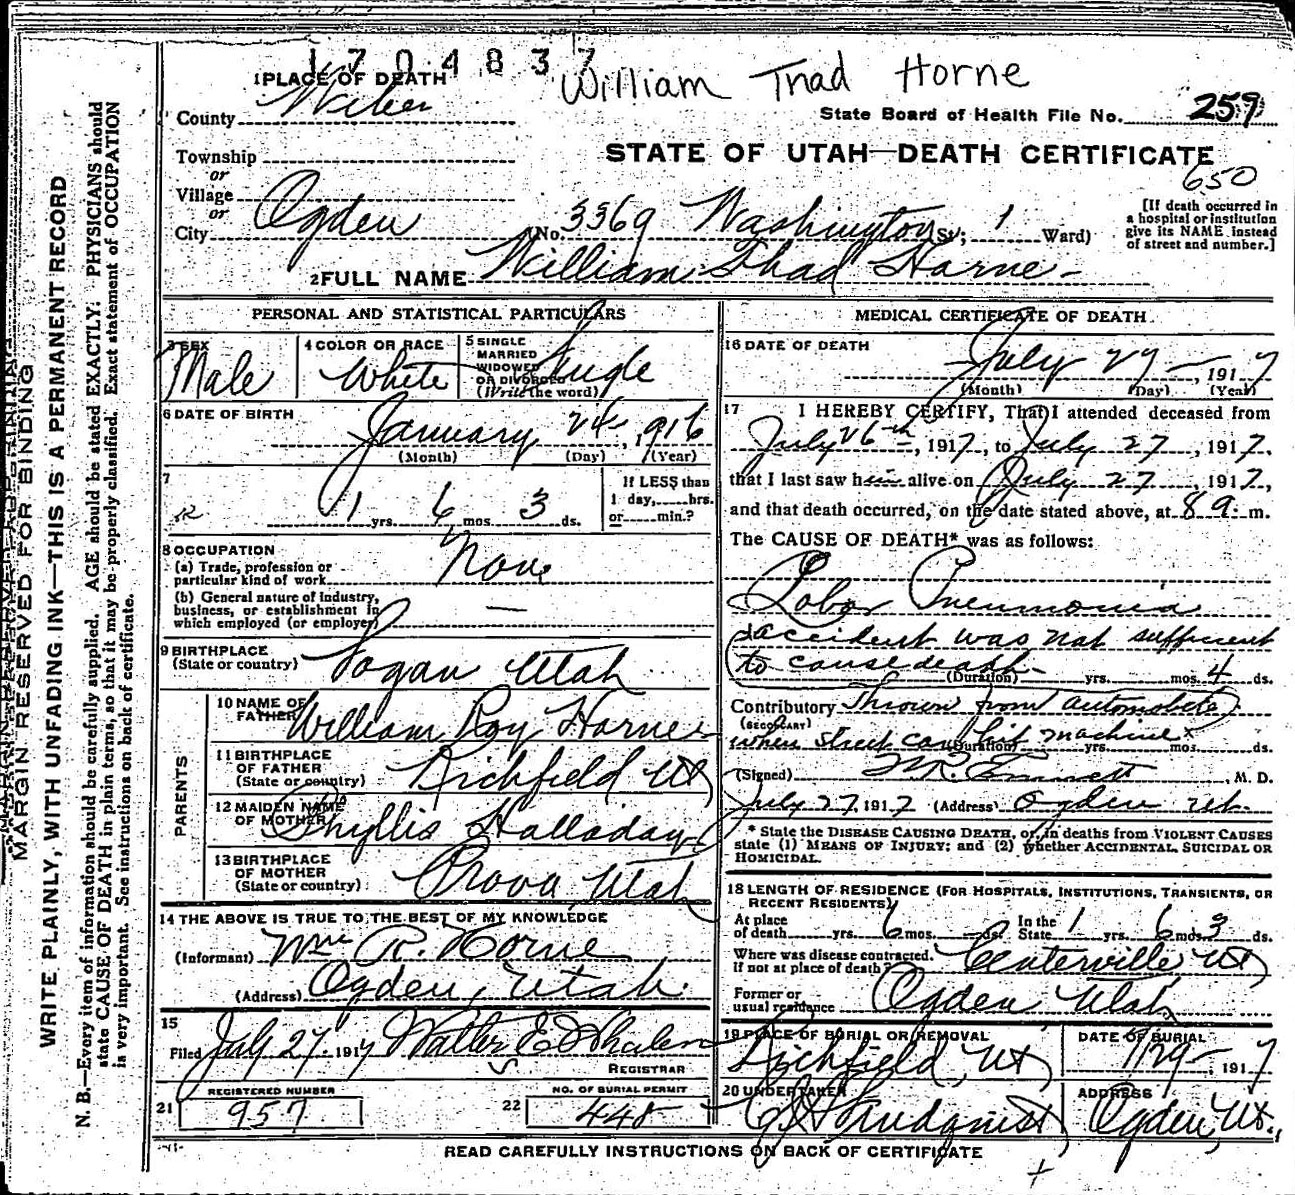 1704837
William Thad Horne
1 PLACE OF DEATH
County Weber
State Board of Health File No. 259
STATE OF UTAH—DEATH CERTIFICATE
650
Township
or
Village
or
City Ogden (No. 3369 Washington St; 1 Ward)
[If death occurred in
a hospital or institution
give its NAME instead
of street and number.]
2 FULL NAME William Thad Horne
PERSONAL AND STATISTICAL PARTICULARS
3 SEX
Male
4 COLOR OR RACE
White
5 SINGLE
MARRIED
WIDOWED
OR DIVORCED
(Write the word)
Single
6 DATE OF BIRTH
January 24, 1916
(Month) (Day) (Year)
7
1 yrs. 6 mos. 3 ds.
If LESS than
1 day, hrs.
or min.?
8 OCCUPATION
(a) Trade, profession or
particular kind of work None
(b) General nature of industry,
business, or establishment in
which employed (or employer) —
9 BIRTHPLACE
(State or country) Logan Utah
PARENTS
10 NAME OF
FATHER William Roy Horne
11 BIRTHPLACE
OF FATHER
(State or country) Richfield Ut
12 MAIDEN NAME
OF MOTHER Phyllis Halladay
13 BIRTHPLACE
OF MOTHER
(State or country) Provo Utah
14 THE ABOVE IS TRUE TO THE BEST OF MY KNOWLEDGE
(Informant) Wm R. Horne
(Address) Ogden, Utah
15
Filed July 27, 1917 Walter E Whalen
REGISTRAR
REGISTERED NUMBER
21 957
NO. OF BURIAL PERMIT
22 448
MEDICAL CERTIFICATE OF DEATH
16 DATE OF DEATH
July 27 - , 1917
(Month) (Day) (Year)
17 I HEREBY CERTIFY, That I attended deceased from
July 26th, 1917, to July 27, 1917,
that I last saw him alive on July 27, 1917,
and that death occurred, on the date stated above, at 8 a. m.
The CAUSE OF DEATH* was as follows:
Lobar Pneumonia
(accident was not sufficient
to cause death—
(Duration) yrs. mos. 4 ds.
Contributory Thrown from automobile
(SECONDARY)
when street car hit machine x
(Duration) yrs. mos. ds.
(Signed) Emmett, M. D.
July 27, 1917 (Address) Ogden Ut.
* State the DISEASE CAUSING DEATH, or, in deaths from VIOLENT CAUSES
state (1) MEANS OF INJURY; and (2) whether ACCIDENTAL, SUICIDAL OR
HOMICIDAL.
18 LENGTH OF RESIDENCE (FOR HOSPITALS, INSTITUTIONS, TRANSIENTS, OR
RECENT RESIDENTS)
At place
of death yrs. 6 mos. — ds. In the
State 1 yrs. 6 mos. 3 ds.
Where was disease contracted,
If not at place of death? Centerville Ut
Former or
usual residence Ogden Utah
19 PLACE OF BURIAL OR REMOVAL
Richfield, Ut
DATE OF BURIAL
7/29 -, 1917
20 UNDERTAKER
ADDRESS
Ogden, Ut.
READ CAREFULLY INSTRUCTIONS ON BACK OF CERTIFICATE
MARGIN RESERVED FOR BINDING
WRITE PLAINLY, WITH UNFADING INK—THIS IS A PERMANENT RECORD
N. B.—Every item of information should be carefully supplied. AGE should be stated EXACTLY. PHYSICIANS should
state CAUSE OF DEATH in plain terms, so that it may be properly classified. Exact statement of OCCUPATION
is very important. See instructions on back of certificate.